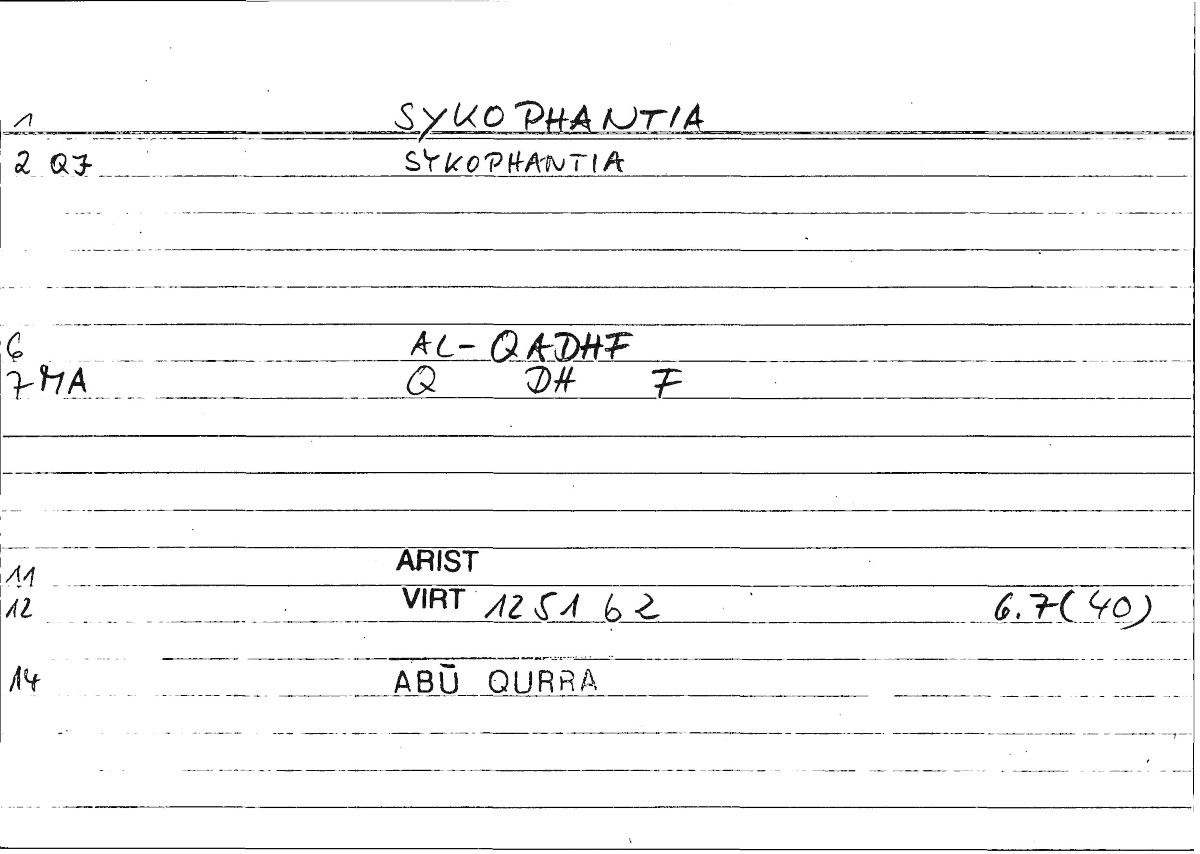 1 SYKOPHANTIA
2 Q7 SYKOPHANTIA
6 AL-QADHF
7 MA Q DH F
11 ARIST
12 VIRT 1251 b 2 6.7(40)
14 ABŪ QURRA